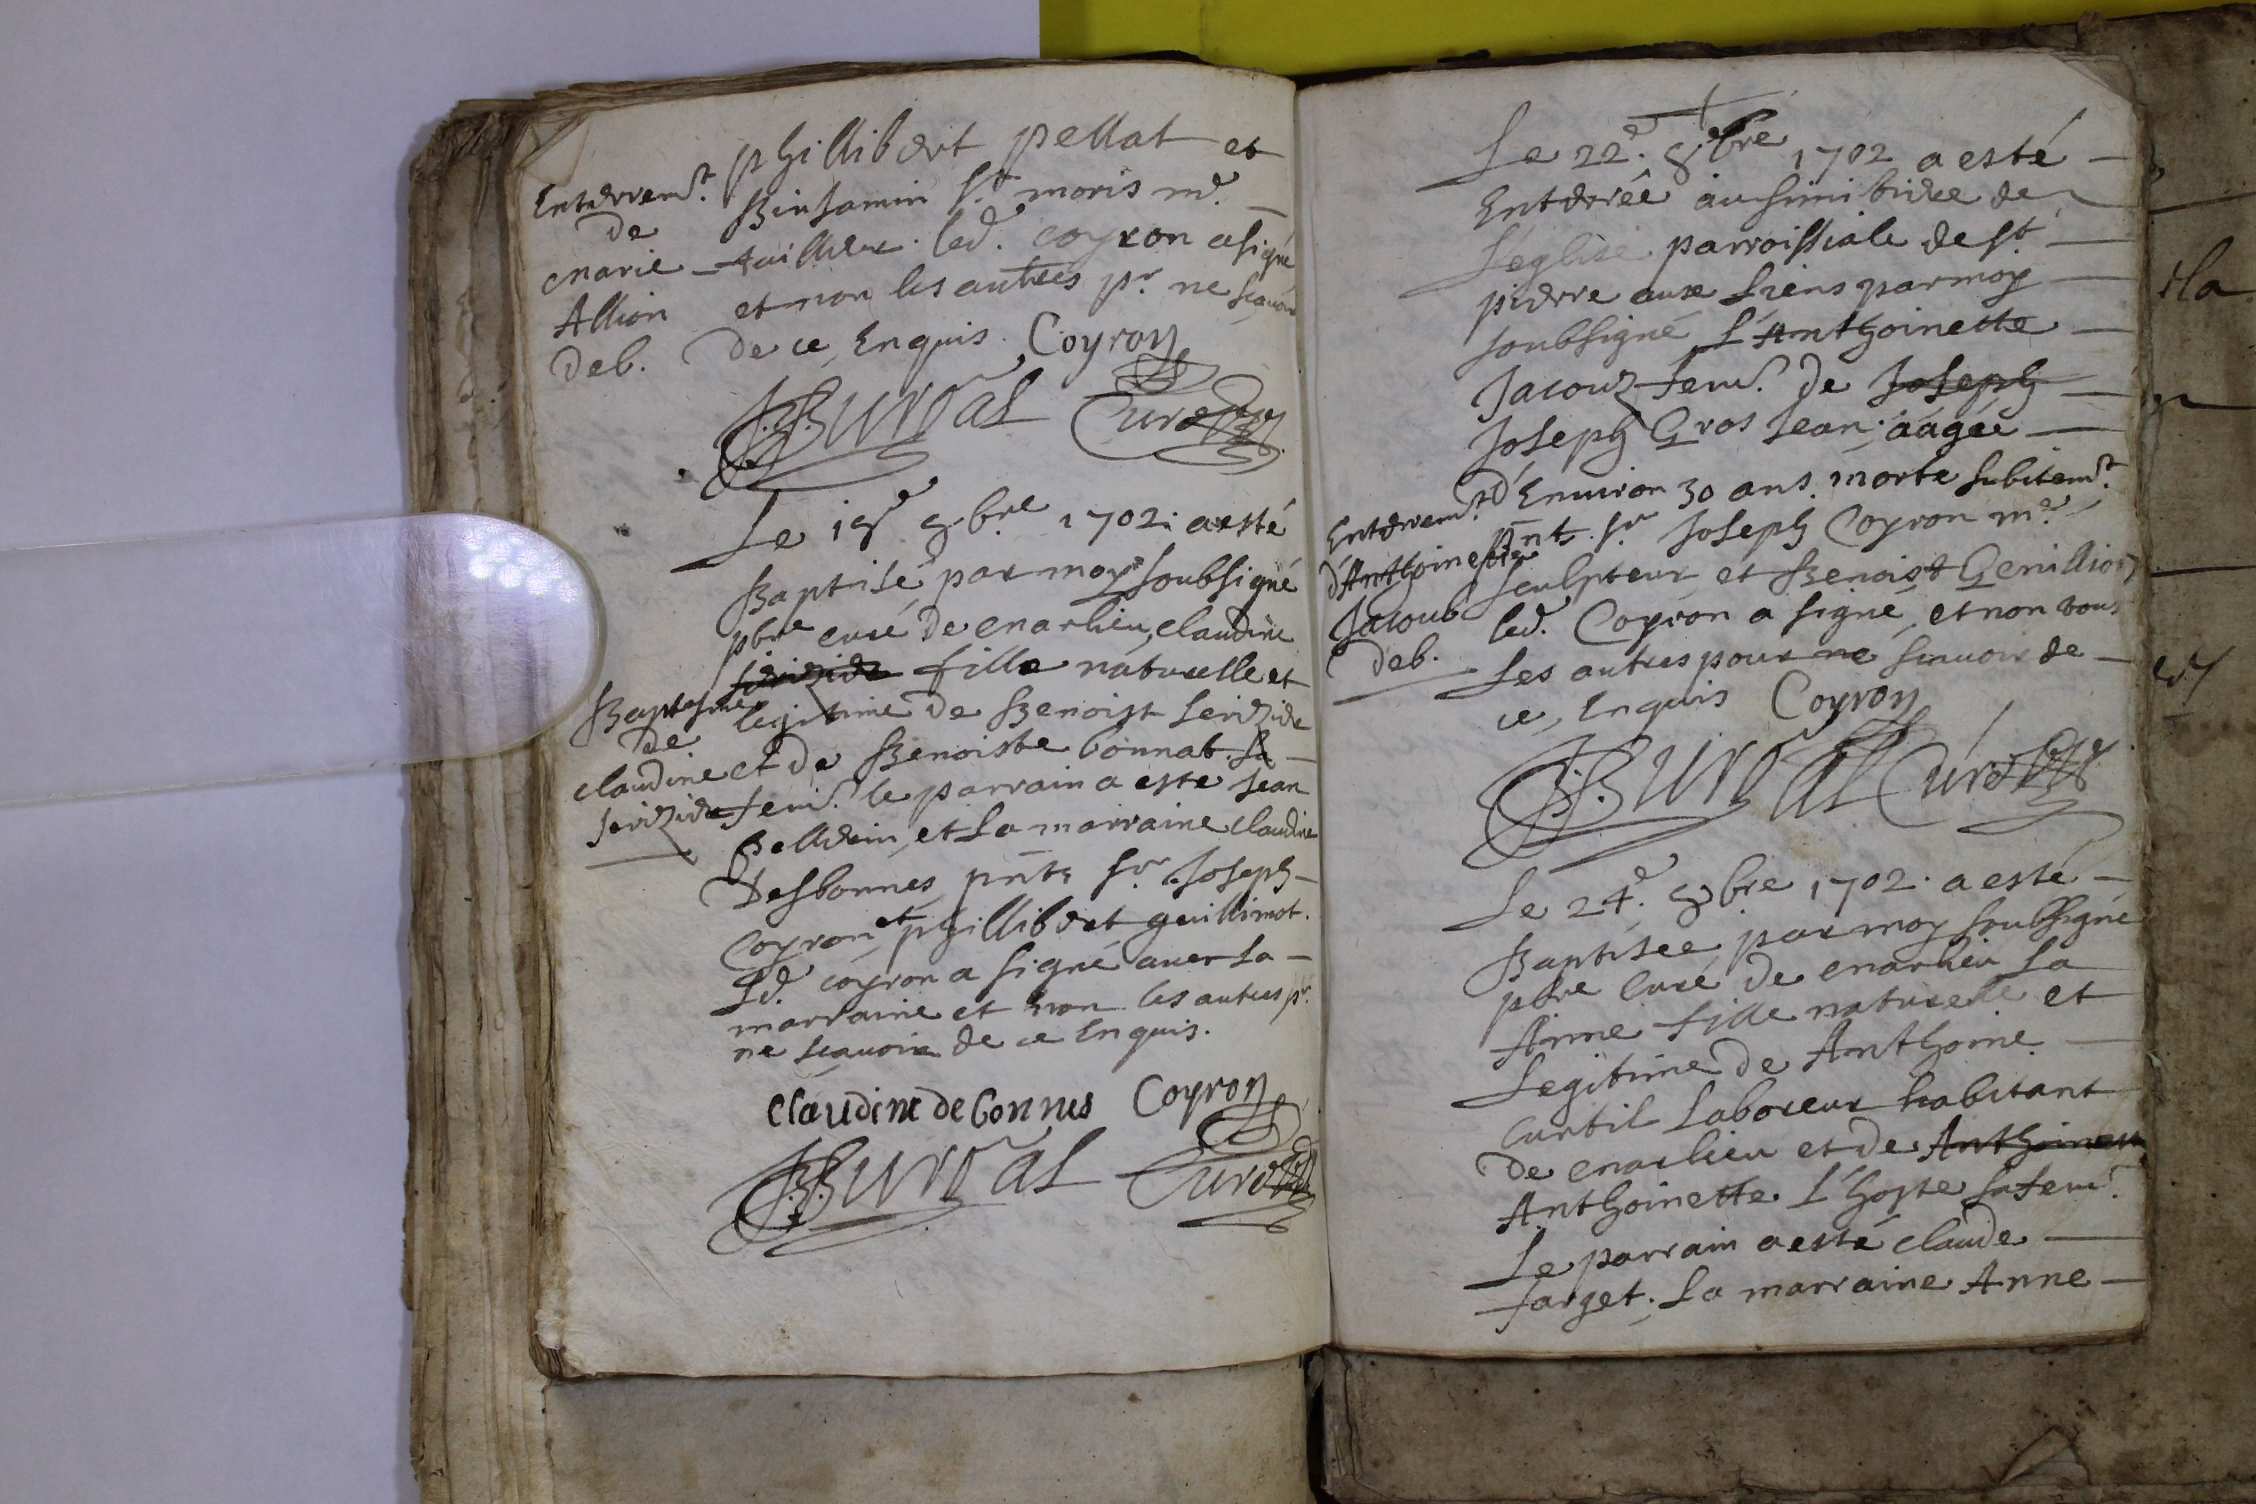 phillibert pellat et
Binjamin St. moris md.
tailleur. led. coyron a signé
et non les autres pr. ne scavoir
de ce Enquis. Coyron
Burdal Curé
Enterremt.
de
marie
Allion
deb.
Le 19e 8.bre 1702. a esté
Baptisé par moy soubsigné
pbre curé de marlieu, claudine
fille naturelle et
legitime de Benoist serizide
et de Benoiste bonnat. sa
femme. le parrain a este Jean
Bellven, et La marraine claudine
desbonnes pnts sr. Joseph
Coyron et phillibert guillimot.
Ld. coyron a signé avec La
marraine et non les autres pr.
ne scavoir de ce Enquis.
Baptesme
de
claudine
serizide
claudine debonnes Coyron
Burdal Curé
Le 22e. 8.bre 1702 a esté
Enterrée au simitiere de
L'eglise parroissiale de st.
pierre aux Liens par moy
soubsigné L'Anthoinette
Jacoub fem. de Joseph
Joseph Gros Jean. áagée
d'Environ 30 ans. morte subitemt.
pnts. sr Joseph Coyron me.
sculpteur et Benoist Genillion
led. Coyron a signé, et non
Les autres pour ne scavoir de
ce, Enquis Coyron
Enterremt.
d'Anthoinette
Jacoub
deb.
Burdal Curé
Le 24e. 8bre 1702. a esté
Baptisée par moy soubsigné
pbre Curé de marlieu La
Anne fille naturelle et
Legitime de Anthoine
Curtil Laboreur habitant
de marlieu et de Anthoinette
Anthoinette L'hoste sa fem.
Le parrain a esté claude
farget. La marraine Anne